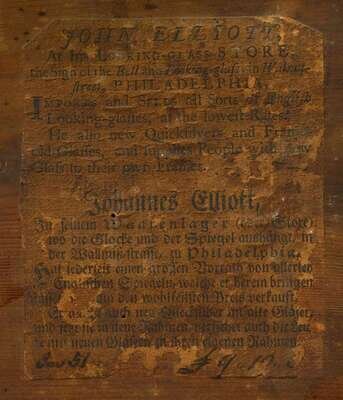 JOHN ELLIOTT,
At his LOOKING-GLASS STORE,
the Sign of the Bell and Looking-glass in Walnut-
street, PHILADELPHIA,
IMPORTS and Sells all Sorts of English
Looking-glasses, at the lowest Rates.
He also new Quicksilvers and Frames
old Glasses, and supplies People with new
Glass to their own Frames.
Johannes Elliott,
In seinem Waarenlager (oder Store)
wo die Glocke und der Spiegel aushängt, in
der Wallnuß-strasse, zu Philadelphia,
Hat jederzeit einen grossen Vorrath von allerley
Englischen Spiegeln, welche er herein bringen
und auf den wohlfeilsten Preis verkauft.
Er auch neu Quecksilber in alte Gläser,
und sezt sie in neue Rahmen, versiehet auch die Leute
mit neuen Gläsern zu ihren eigenen Rahmen.